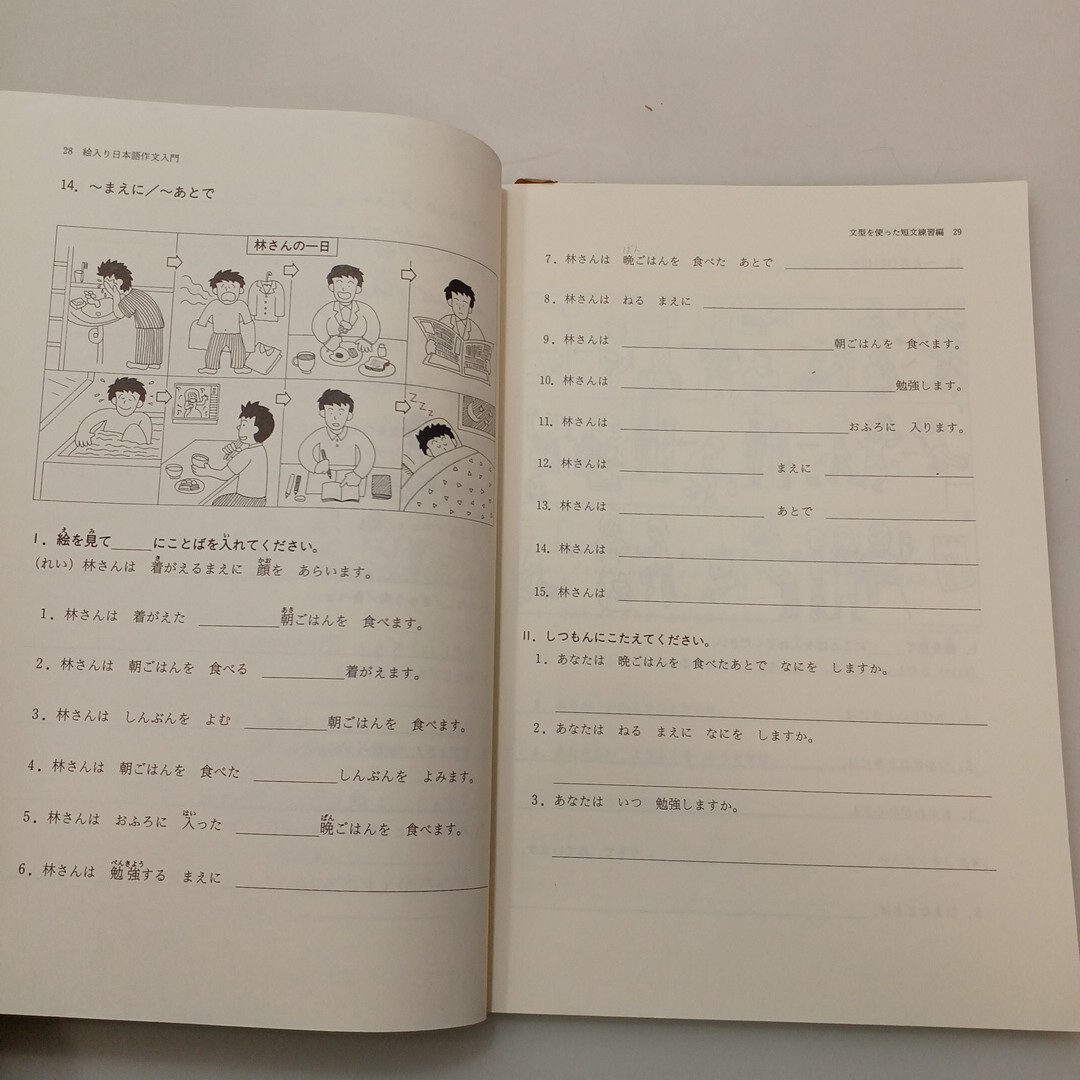 28 絵入り日本語作文入門
14. ～まえに／～あとで
林さんの一日
ZZZ
I. 絵を見て_____にことばを入れてください。
(れい) 林さんは 着がえるまえに 顔を あらいます。
1. 林さんは 着がえた __________朝ごはんを 食べます。
2. 林さんは 朝ごはんを 食べる __________着がえます。
3. 林さんは しんぶんを よむ __________朝ごはんを 食べます。
4. 林さんは 朝ごはんを 食べた __________しんぶんを よみます。
5. 林さんは おふろに 入った __________晩ごはんを 食べます。
6. 林さんは 勉強する まえに ______________________________
文型を使った短文練習編 29
7. 林さんは 晩ごはんを 食べた あとで ____________________
8. 林さんは ねる まえに ______________________________
9. 林さんは ________________________朝ごはんを 食べます。
10. 林さんは ______________________________勉強します。
11. 林さんは ________________________おふろに 入ります。
12. 林さんは ________________ まえに ________________
13. 林さんは ________________ あとで ________________
14. 林さんは ________________________________________
15. 林さんは ________________________________________
II. しつもんにこたえてください。
1. あなたは 晩ごはんを 食べたあとで なにを しますか。
2. あなたは ねる まえに なにを しますか。
3. あなたは いつ 勉強しますか。